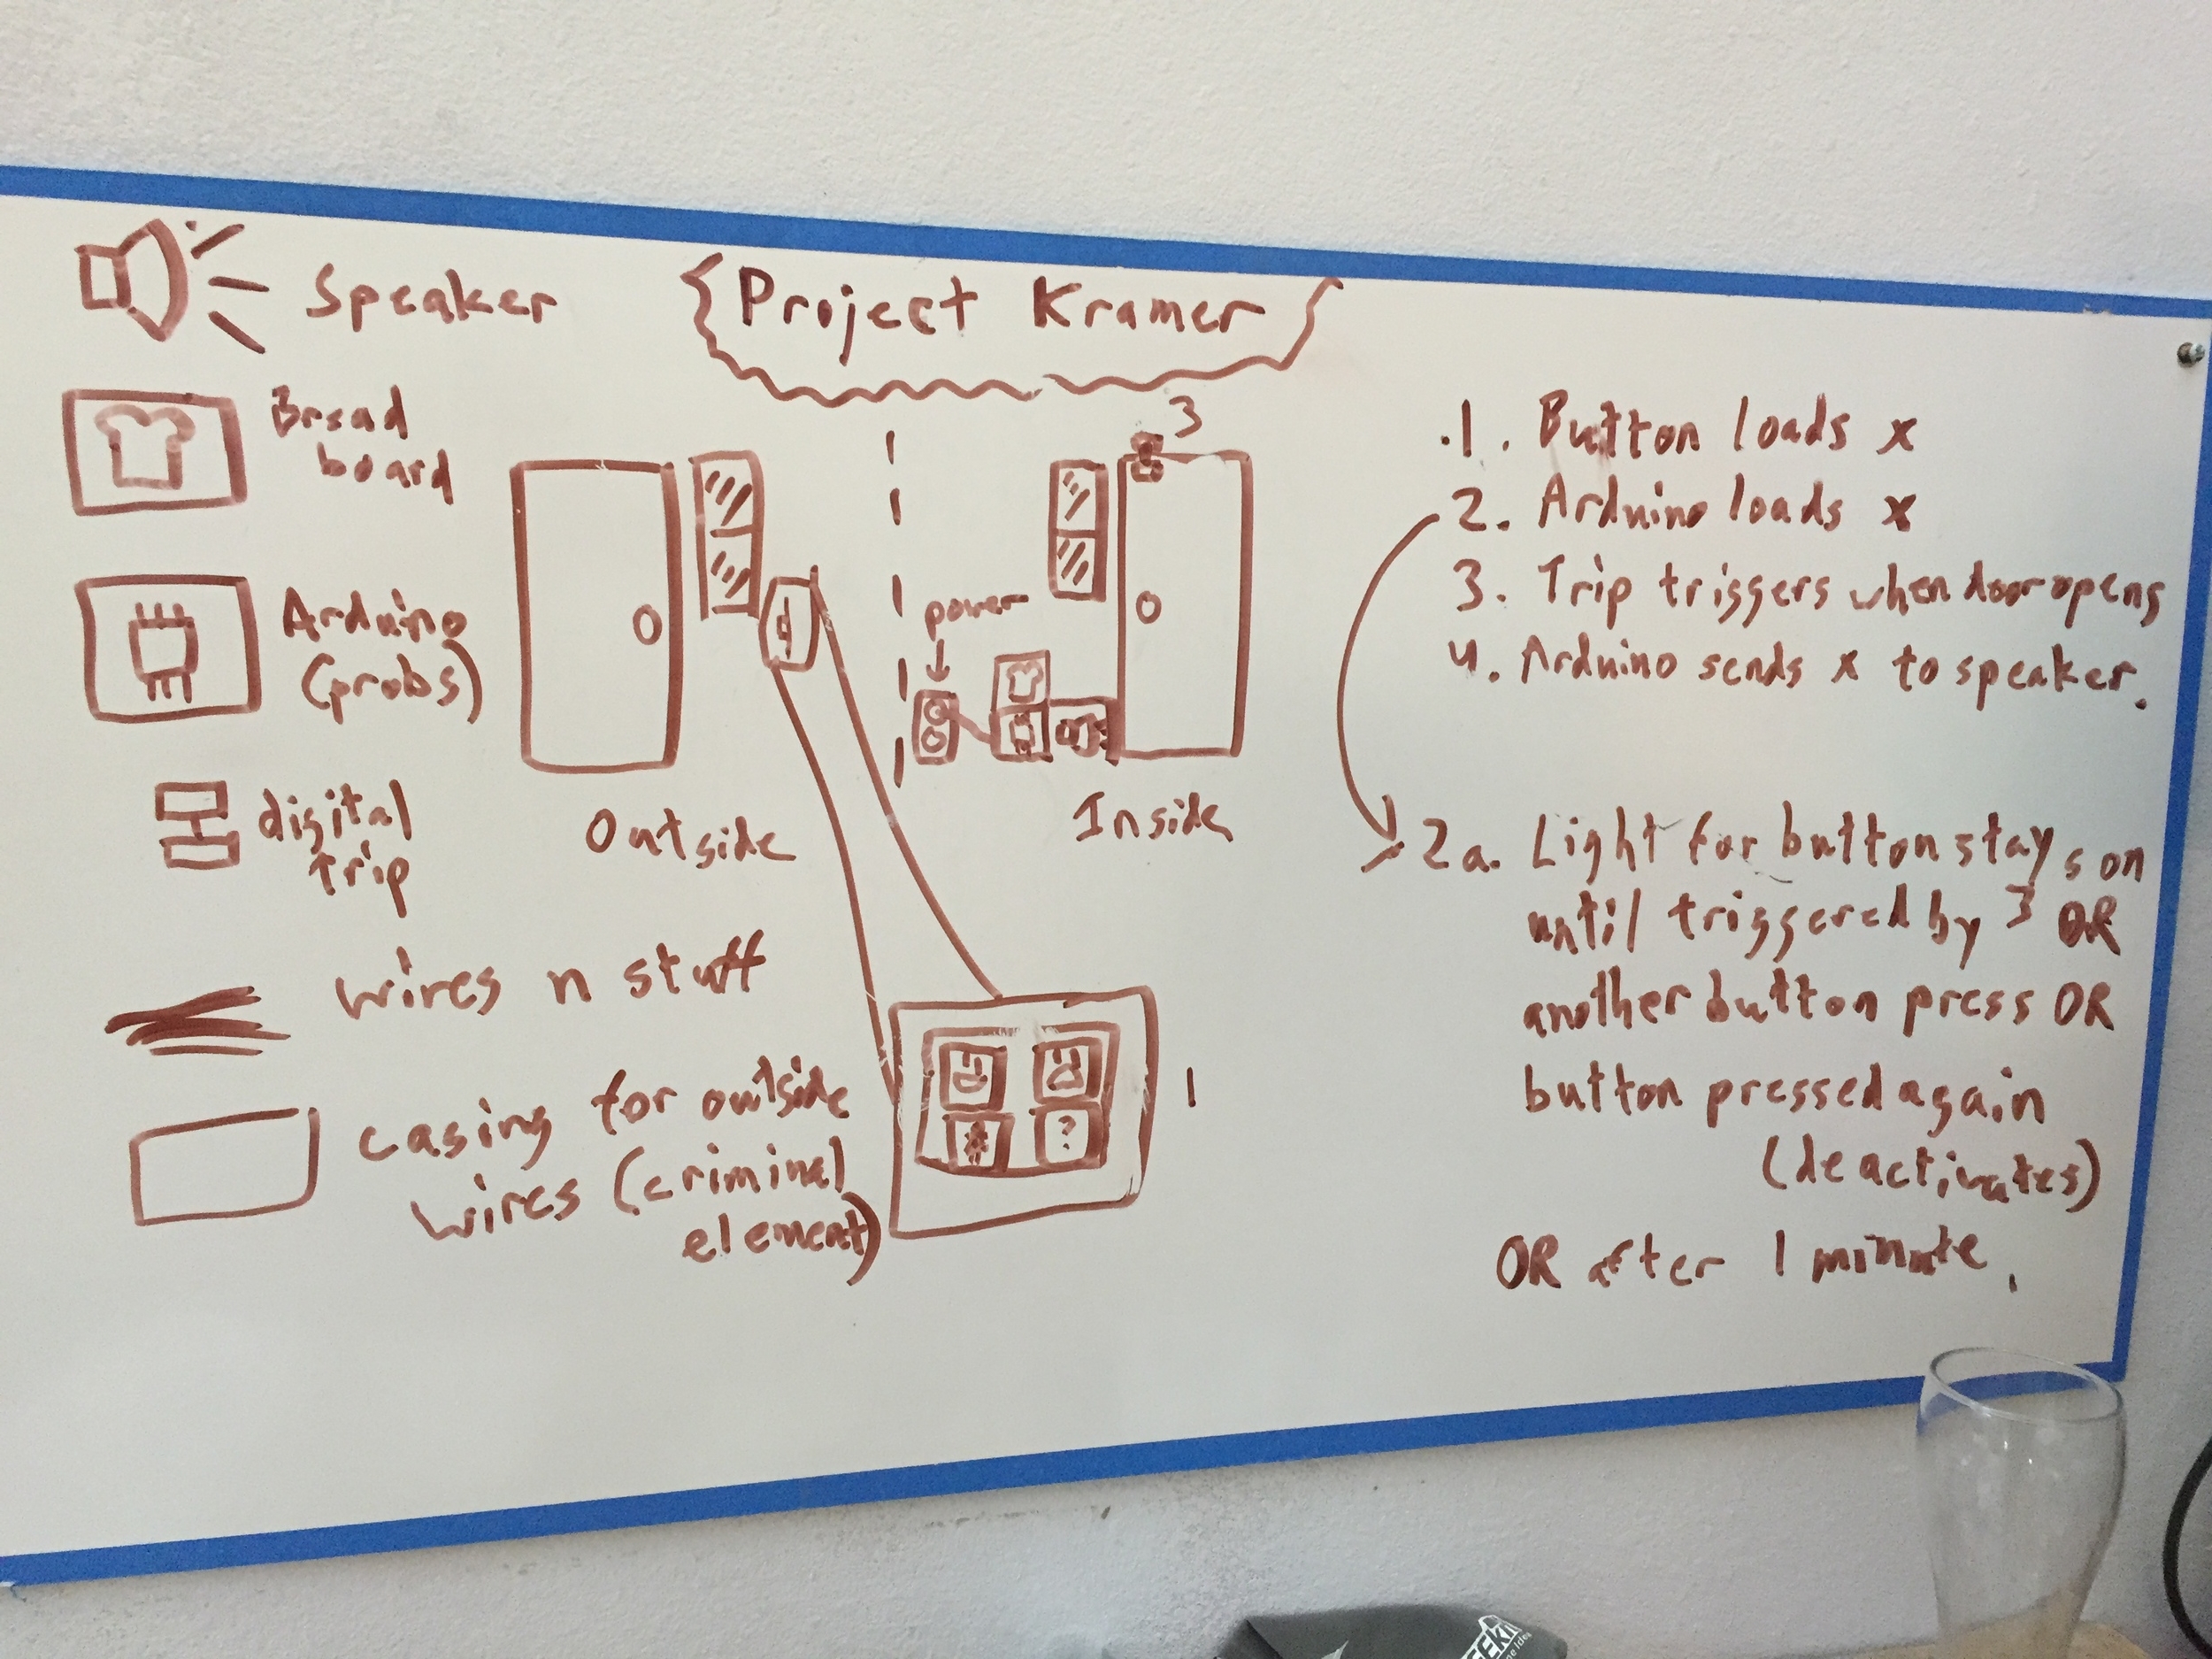 Project Kramer
Speaker
Bread
board
Arduino
(probs)
digital
trip
wires n stuff
casing for outside
wires (criminal
element)
Outside
power
3
Inside
?
1
1. Button loads x
2. Arduino loads x
3. Trip triggers when door opens
4. Arduino sends x to speaker.
2a. Light for button stays on
until triggered by 3 OR
another button press OR
button pressed again
(deactivates)
OR after 1 minute.